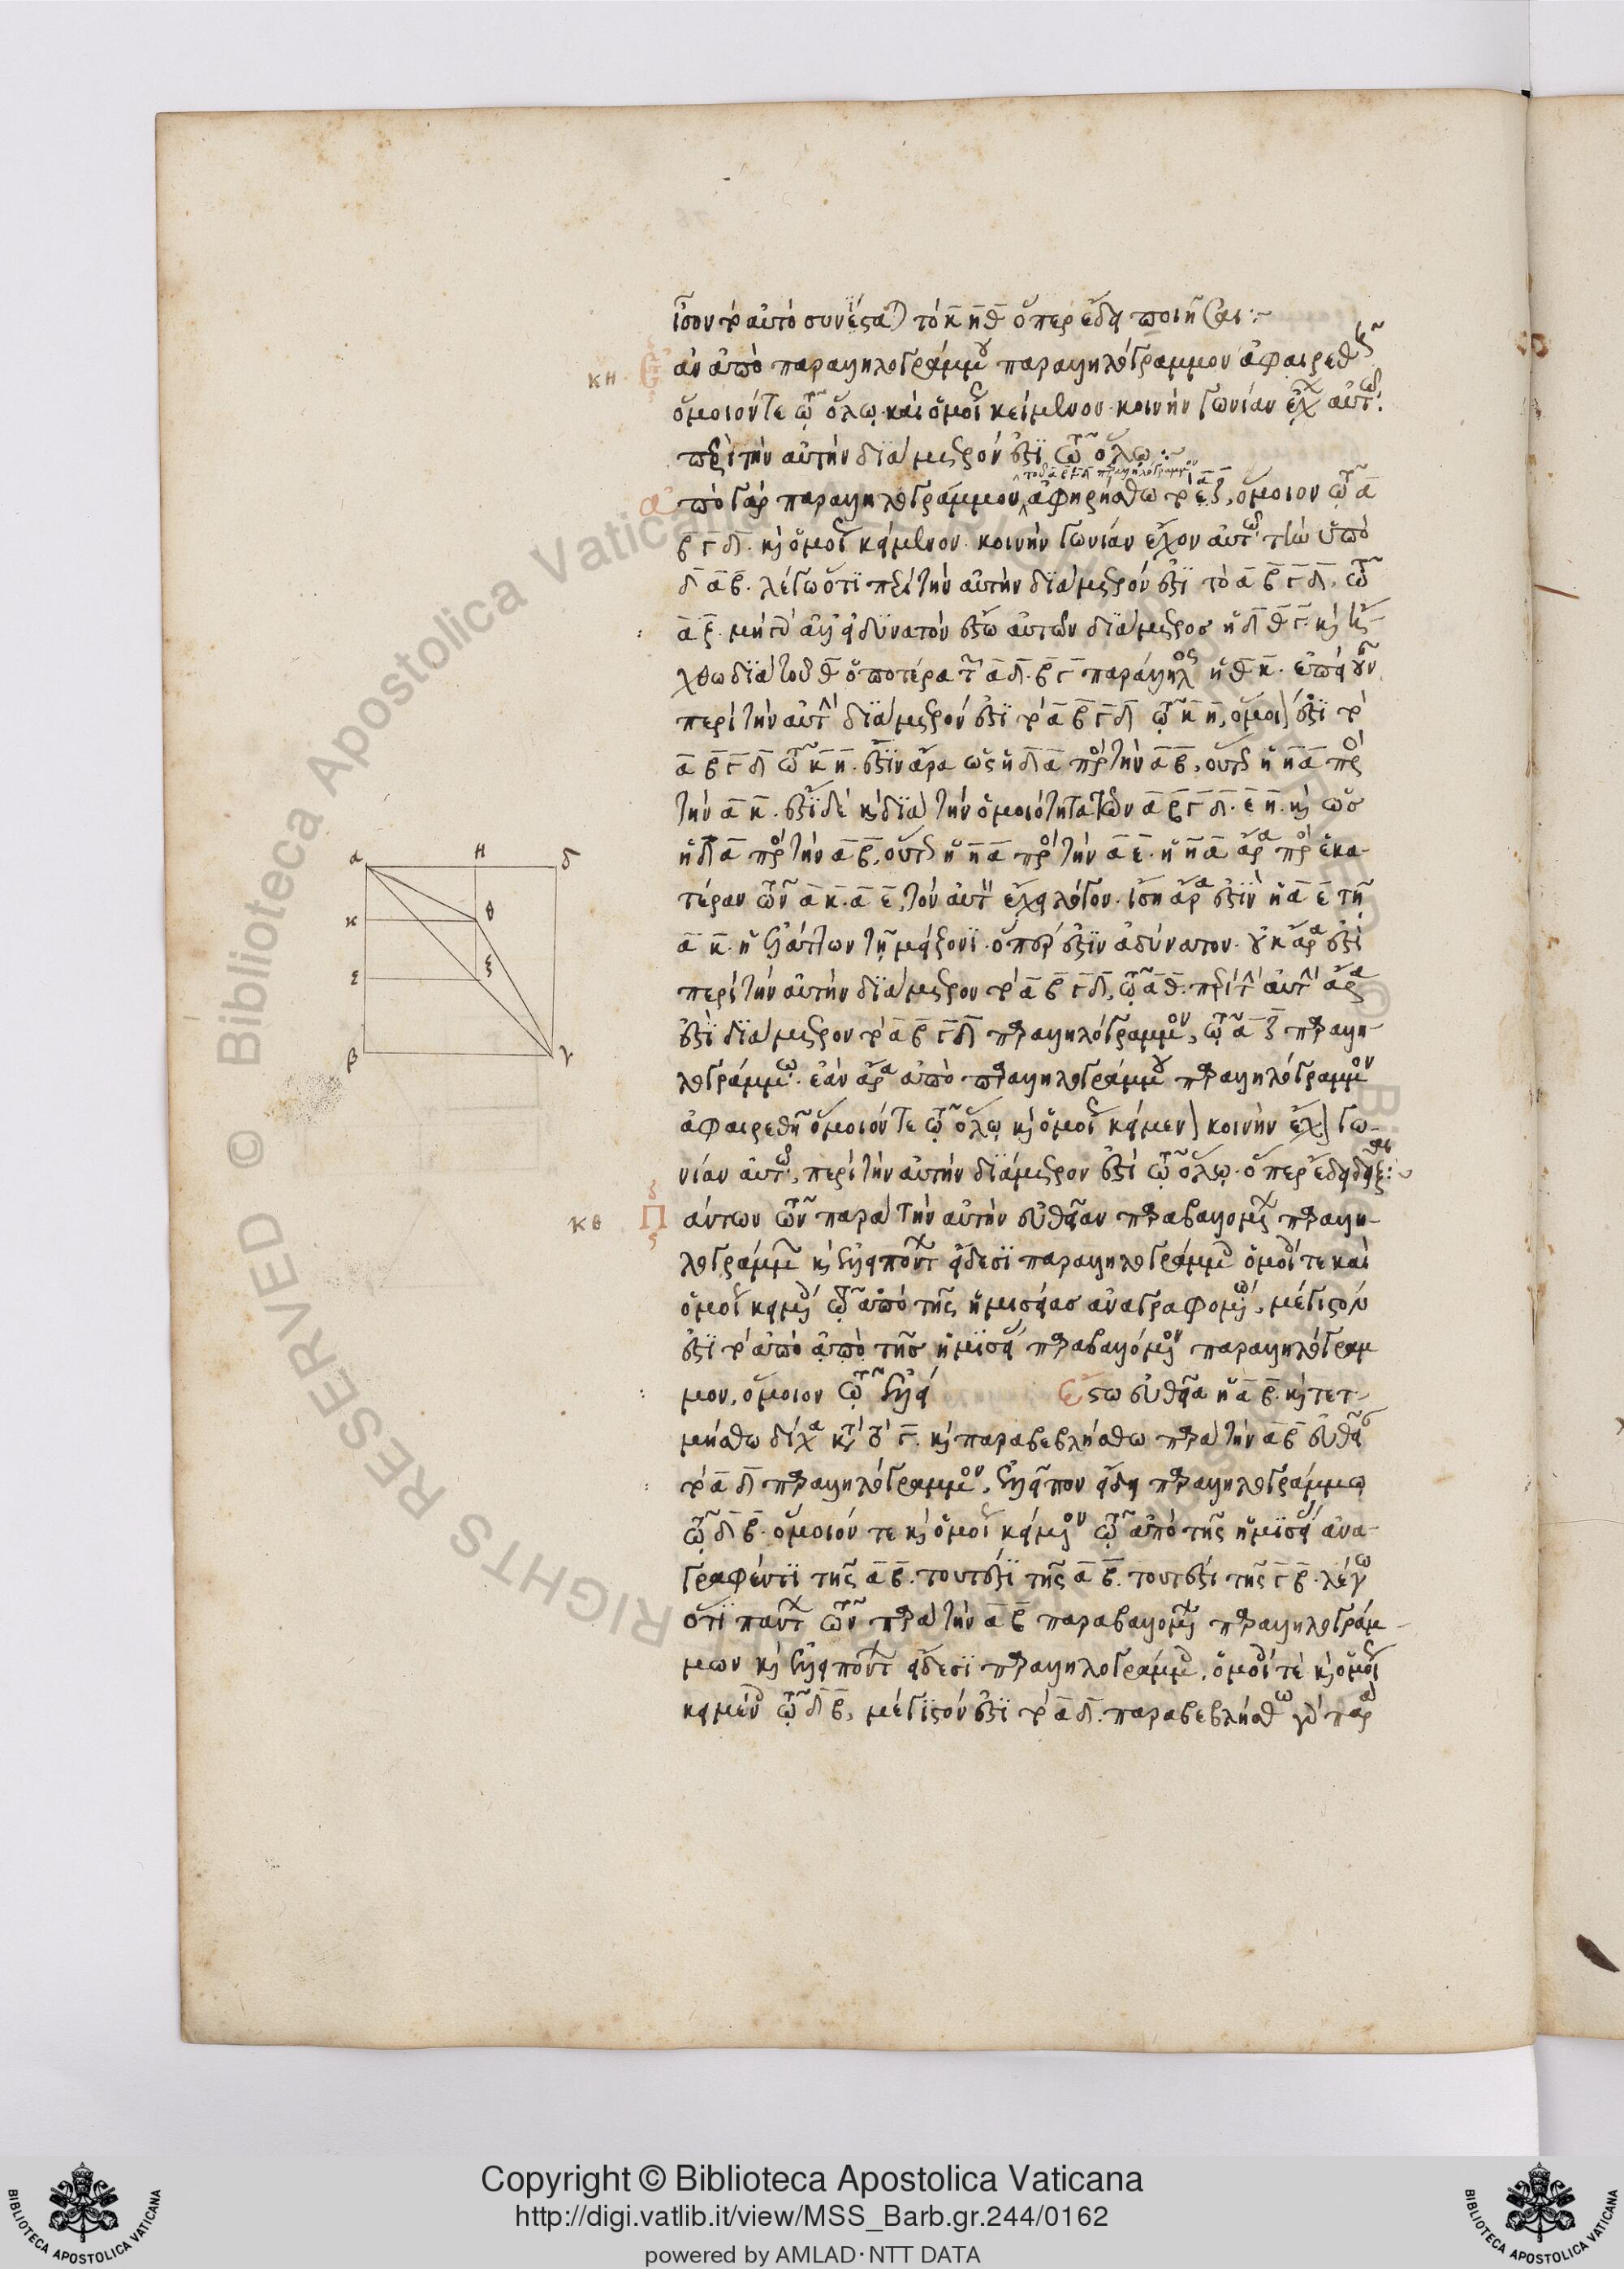 ἴσον τὸ αὐτὸ συνέσταται τὸ κ̄ η̄θ̄ ὅπερ ἔδει ποιῆσαι:~
κη. Ἐὰν ἀπὸ παραλληλογράμμου παραλληλόγραμμον ἀφαιρεθῇ
ὅμοιόν τε τῷ ὅλῳ καὶ ὁμοίως κείμενον κοινὴν γωνίαν ἔχον αὐτῷ.
περὶ τὴν αὐτὴν διάμετρόν ἐστι τῷ ὅλῳ:~
τοῦ α̅β̅γ̅δ̅ παραλληλόγραμμον
Ἀπὸ γὰρ παραλληλογράμμου ἀφῃρήσθω τὸ α̅ξ̅, ὅμοιον τῷ α̅
β̅γ̅δ̅. καὶ ὁμοίως κείμενον. κοινὴν γωνίαν ἔχον αὐτῷ τὴν ὑπὸ
δ̅α̅β̅. λέγω ὅτι περὶ τὴν αὐτὴν διάμετρόν ἐστι τὸ α̅β̅γ̅δ̅, τῷ
α̅ξ̅. μὴ γὰρ ἀλλ' εἰ δυνατὸν ἔστω αὐτῶν διάμετρος ἡ δ̅θ̅γ̅. καὶ ἤ-
χθω διὰ τοῦ θ̅ ὁποτέρα τῶν α̅δ̅. β̅γ̅ παράλληλος ἡ θ̅κ̅. ἐπεὶ οὖν
περὶ τὴν αὐτὴν διάμετρόν ἐστι τὸ α̅β̅γ̅δ̅ τῷ κ̅η̅, ὅμοιον ἐστι τὸ
α̅β̅γ̅δ̅ τῷ κ̅η̅. ἔστιν ἄρα ὡς ἡ δ̅α̅ πρὸς τὴν α̅β̅, οὕτως ἡ η̅α̅ πρὸς
τὴν α̅κ̅. ἔστι δὲ καὶ διὰ τὴν ὁμοιότητα τῶν α̅β̅γ̅δ̅. ε̅η̅. καὶ ὡς
ἡ δ̅α̅ πρὸς τὴν α̅β̅, οὕτως ἡ η̅α̅ πρὸς τὴν α̅ε̅. ἡ η̅α̅ ἄρα πρὸς ἑκα-
τέραν τῶν α̅κ̅. α̅ε̅, τὸν αὐτὸν ἔχει λόγον. ἴση ἄρα ἐστὶν ἡ α̅ε̅ τῇ
α̅κ̅. ἡ ἐλάττων τῇ μείζονι. ὅπερ ἐστὶν ἀδύνατον. οὐκ ἄρα ἐστὶ
περὶ τὴν αὐτὴν διάμετρον τὸ α̅β̅γ̅δ̅, τῷ α̅θ̅. περὶ τὴν αὐτὴν ἄρα
ἐστὶ διάμετρον τὸ α̅β̅γ̅δ̅ παραλληλόγραμμον, τῷ α̅ξ̅ παραλλη-
λογράμμῳ. ἐὰν ἄρα ἀπὸ παραλληλογράμμου παραλληλόγραμμον
ἀφαιρεθῇ ὅμοιόν τε τῷ ὅλῳ καὶ ὁμοίως κείμενον κοινὴν ἔχον γω-
νίαν αὐτῷ, περὶ τὴν αὐτὴν διάμετρον ἐστὶ τῷ ὅλῳ. ὅπερ ἔδει δεῖξαι:~
κθ Πάντων τῶν παρὰ τὴν αὐτὴν εὐθεῖαν παραβαλλομένων παραλλη-
λογράμμων καὶ ἐλλειπόντων εἴδεσι παραλληλογράμμοις ὁμοίοις τε καὶ
ὁμοίως κειμένοις τῷ ἀπὸ τῆς ἡμισείας ἀναγραφομένῳ, μέγιστόν
ἐστι τὸ ἀπὸ ἀπὸ τῆς ἡμισείας παραβαλλόμενον παραλληλόγραμ
μον, ὅμοιον τῷ ἐλλείμματι Ἔστω εὐθεῖα ἡ α̅β̅. καὶ τετ-
μήσθω δίχα κατὰ τὸ γ̅. καὶ παραβεβλήσθω παρὰ τὴν α̅β̅ εὐθεῖαν
τὸ α̅δ̅ παραλληλόγραμμον, ἐλλεῖπον εἴδει παραλληλογράμμῳ
τῷ δ̅β̅. ὅμοιόν τε καὶ ὁμοίως κείμενον τῷ ἀπὸ τῆς ἡμισείας ἀνα-
γραφέντι τῆς α̅β̅. τουτέστι τῆς α̅β̅. τουτέστι τῆς γ̅β̅. λέγω
ὅτι πάντων τῶν παρὰ τὴν α̅β̅ παραβαλλομένων παραλληλογράμ-
μων καὶ ἐλλειπόντων εἴδεσι παραλληλογράμμοις, ὁμοίοις τε καὶ ὁμοίως
κειμένοις τῷ δ̅β̅, μέγιστόν ἐστι τὸ α̅δ̅. παραβεβλήσθω γὰρ παρὰ
α η δ
κ θ
ε ξ
β γ
Copyright © Biblioteca Apostolica Vaticana
http://digi.vatlib.it/view/MSS_Barb.gr.244/0162
powered by AMLAD·NTT DATA
BIBLIOTECA APOSTOLICA VATICANA
BIBLIOTECA APOSTOLICA VATICANA